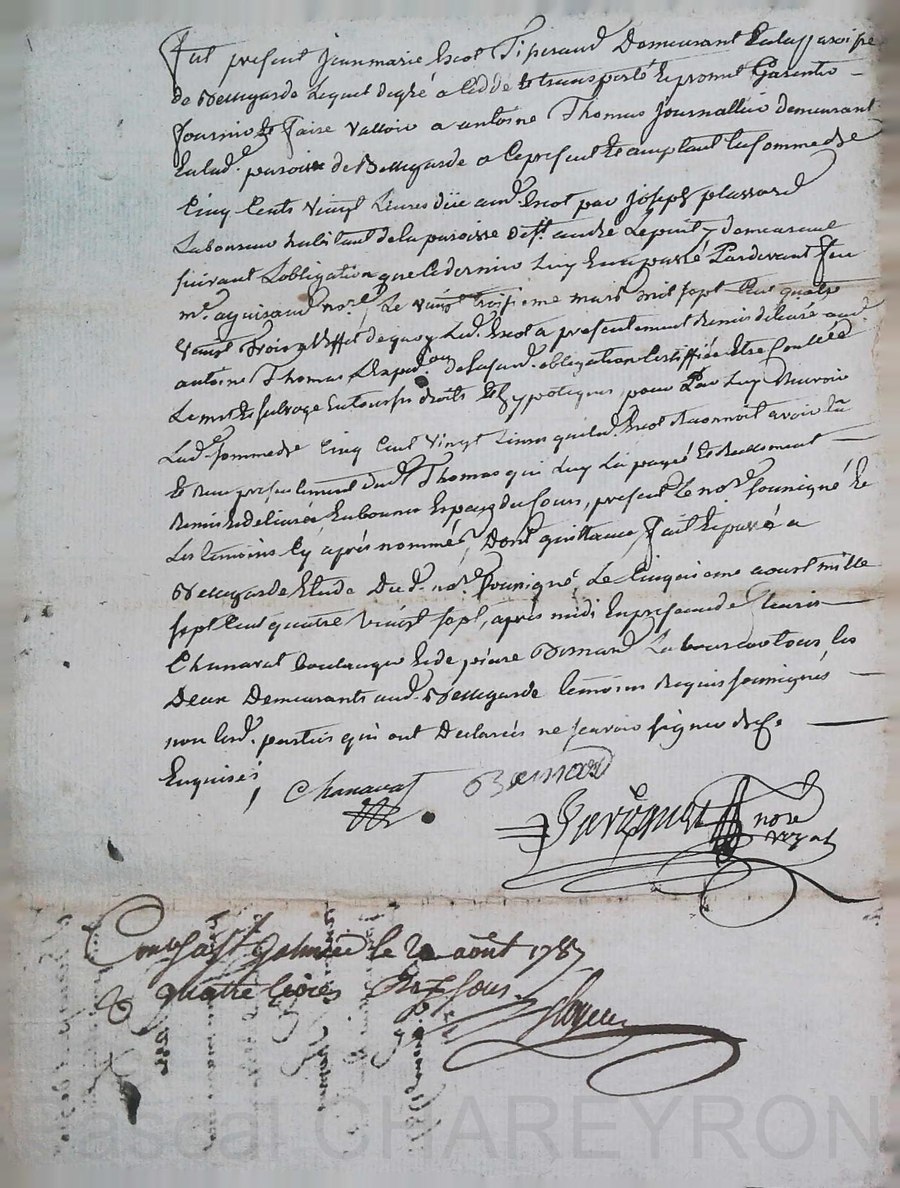 Fut present Jean marie Escot Tisserand Demeurant En la parroisse
de Bellegarde Lequel de gré a Ceddé et transporté Et promet Garentir
fournir Et faire Valloir a antoine Thomas Journallier demeurant
En lad. paroisse de Bellegarde a Ce present Et acceptant La somme de
Cinq Cents Vingt Livres düe aud. Escot par Joseph plassard
Laboureur habitant de la paroisse de St. andré Le puit y demeurant
suivant L'obligation que Ce dernier Luy En a passé Pardevant feu
me. aguiraud nore. Le Vingt troisieme mars mil sept Cent quatre
Vingt trois a L'effet de quoy Led. Escot a presentement Remis delivré aud.
antoine Thomas L'Expedon. de la susd. obligation Certiffiée Et Controllée
Le met Et subroge En tous ses droits Et hypoteques pour Par Luy Recevoir
Lad. somme de Cinq Cent Vingt Livres que led. Escot Reconnoit avoir Eu
Et Reçu presentement dud. Thomas qui Luy La payé Et Reellement
Remis Et delivrée En bonnes Especes du Cours, present Le nore. soussigné Et
Les temoins Cy après nommés, Dont quittance fait Et passé a
Bellegarde Etude Dud. nore. soussigné Le Cinquieme aoust mille
sept Cent quatre Vingt sept, après midi En presence de fleuris
Chanavat boulanger Et de pierre Bernard Laboureur tous les
Deux Demeurants aud. Bellegarde temoins Requis soussignés
non Lesd. parties qui ont Declarés ne sçavoir signer de Ce
Enquises
Chanavat Bernard
nore
royal
Conlé a St galmier le 20 août 1787
Rs quatre livres Dix sous
Pascal CHAREYRON